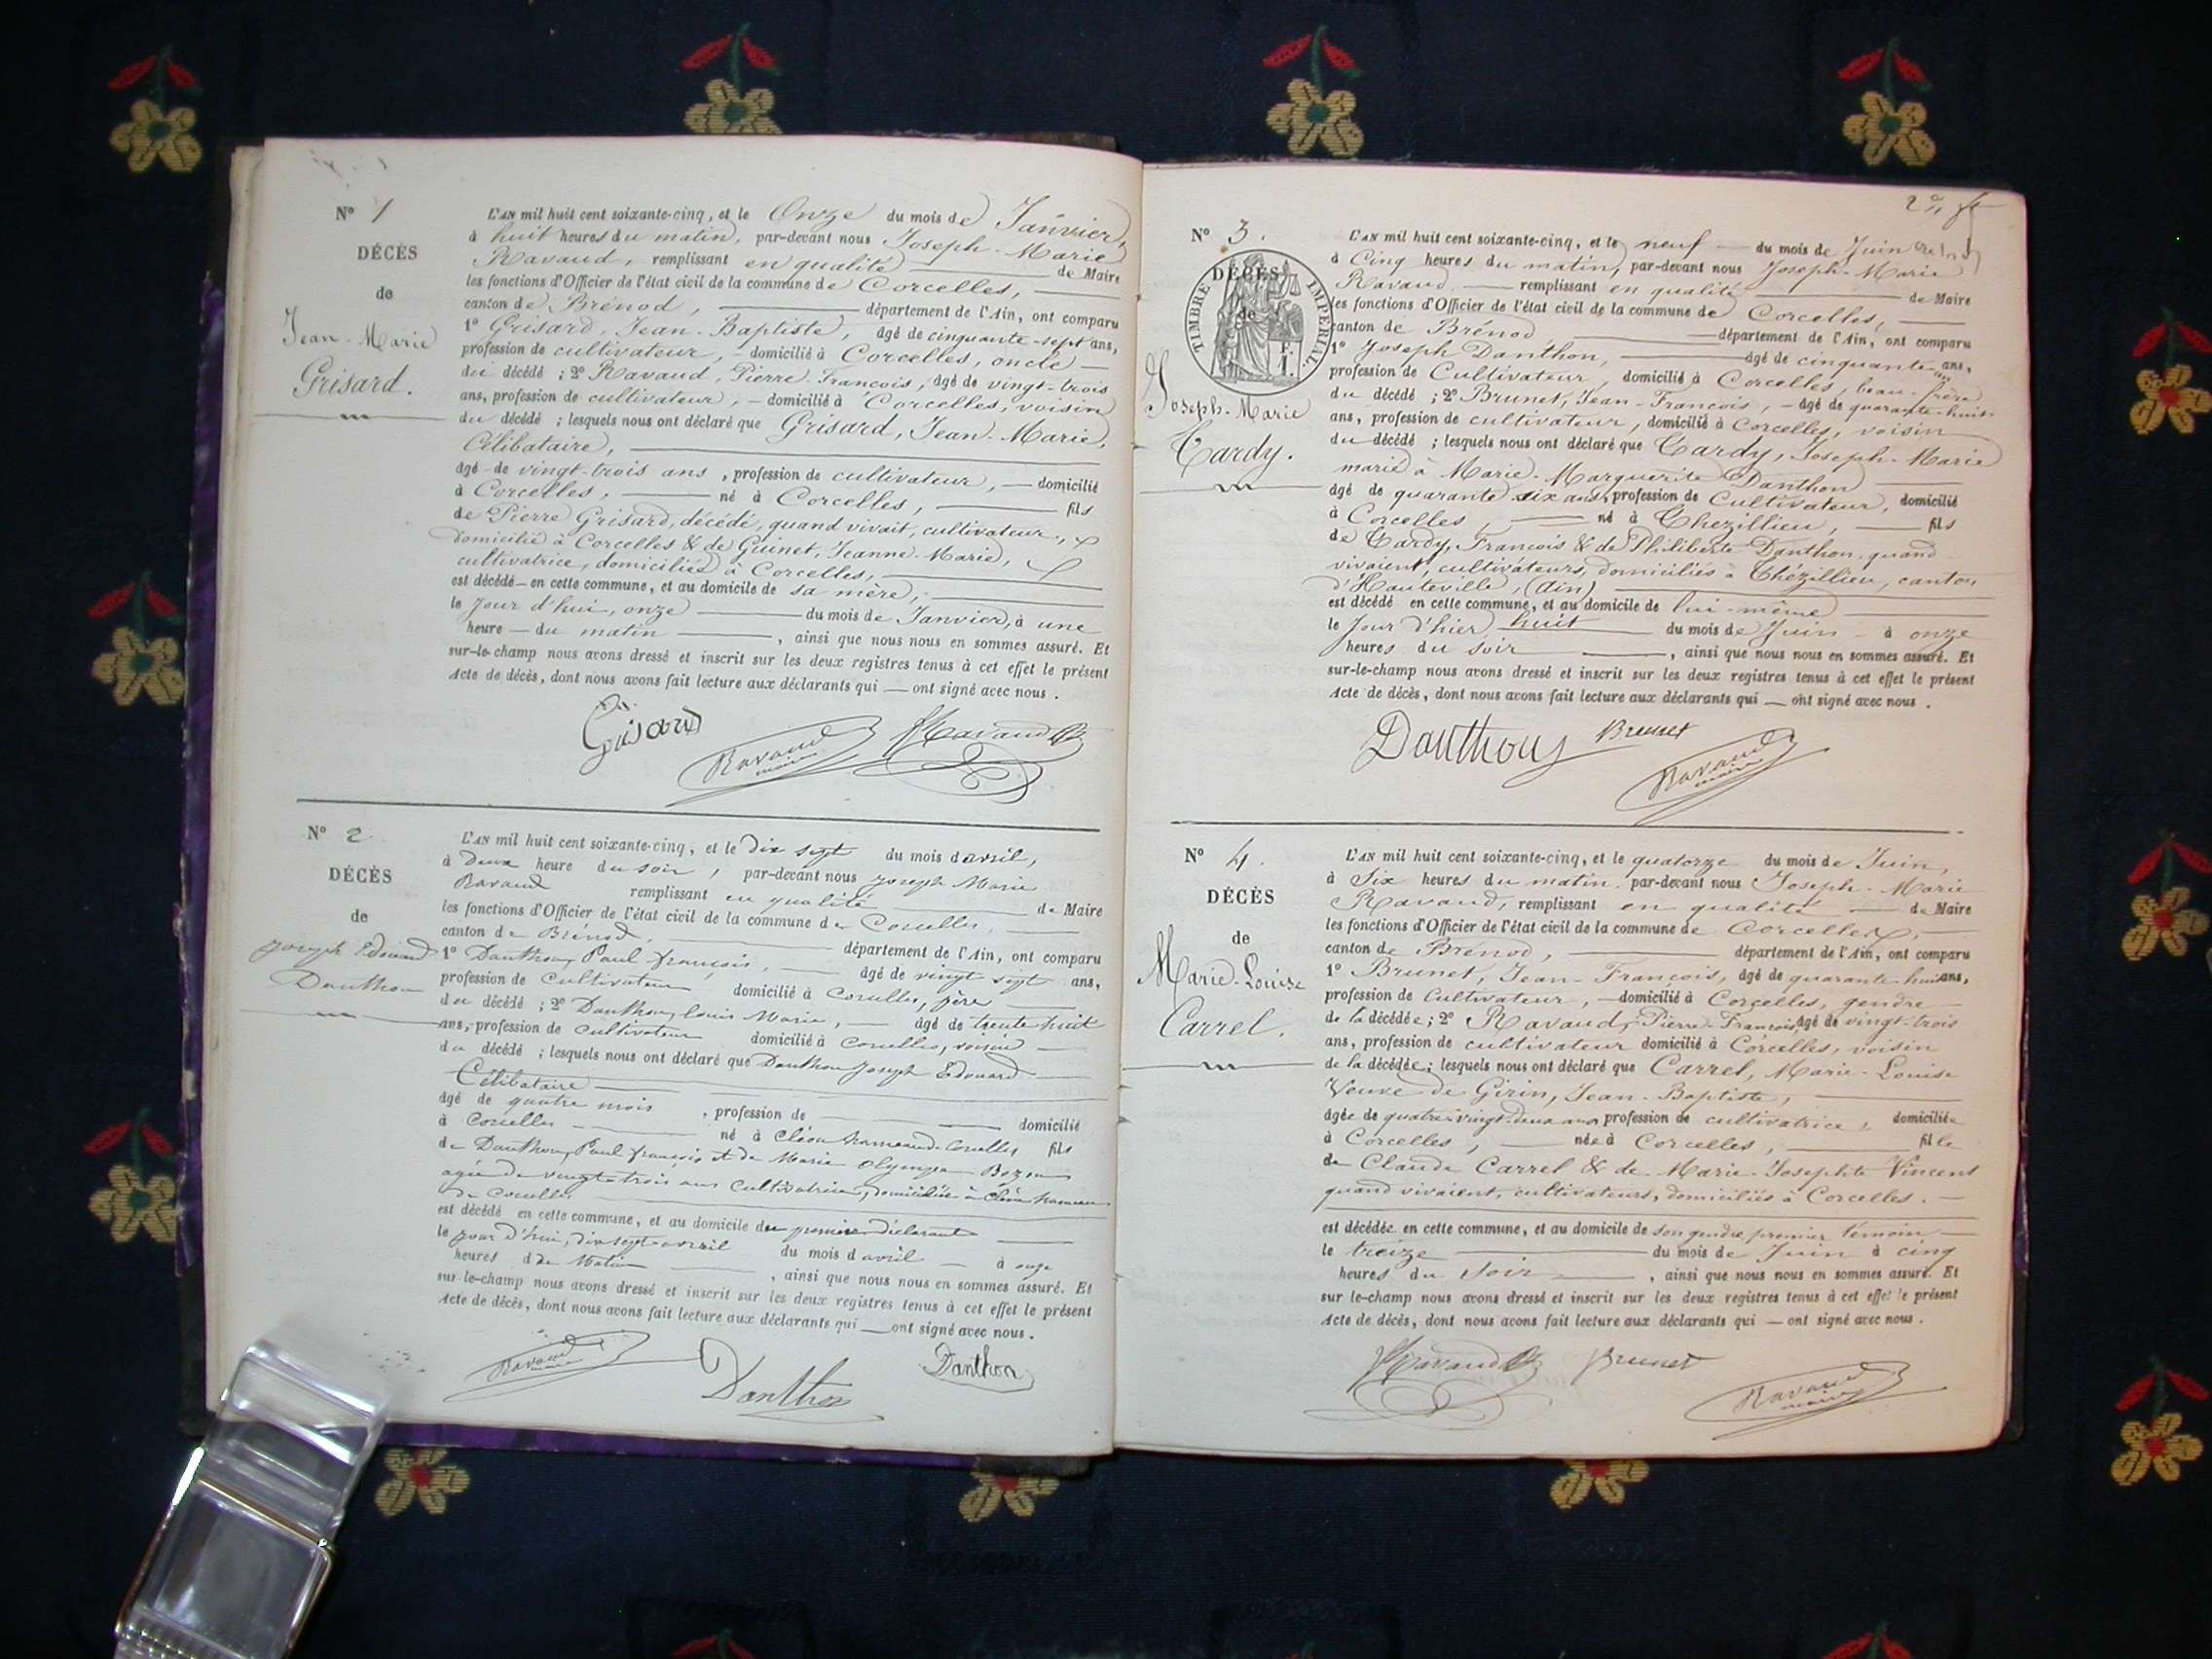 N° 1
DÉCÈS
de
Jean-Marie
Grisard.
L'AN mil huit cent soixante-cinq, et le Onze du mois de Janvier,
à huit heures du matin, par-devant nous Joseph-Marie
Ravaud, remplissant en qualité de Maire
les fonctions d'Officier de l'état civil de la commune de Corcelles,
canton de Brénod, département de l'Ain, ont comparu
1° Grisard, Jean-Baptiste, âgé de cinquante-sept ans,
profession de cultivateur, domicilié à Corcelles, oncle
du décédé ; 2° Ravaud, Pierre-François, âgé de vingt-trois
ans, profession de cultivateur, domicilié à Corcelles, voisin
du décédé ; lesquels nous ont déclaré que Grisard, Jean-Marie,
Célibataire,
âgé de vingt-trois ans, profession de cultivateur, domicilié
à Corcelles, né à Corcelles, fils
de Pierre Grisard, décédé, quand vivait, cultivateur,
domicilié à Corcelles & de Guinet, Jeanne-Marie,
cultivatrice, domiciliée à Corcelles,
est décédé en cette commune, et au domicile de sa mère,
le jour d'hui, onze du mois de Janvier, à une
heure du matin, ainsi que nous nous en sommes assuré. Et
sur-le-champ nous avons dressé et inscrit sur les deux registres tenus à cet effet le présent
Acte de décès, dont nous avons fait lecture aux déclarants qui ont signé avec nous.
Grisard Ravaud maire Ravaud
N° 2
DÉCÈS
de
Joseph Edouard
Danthon
L'AN mil huit cent soixante-cinq, et le dix sept du mois d'avril,
à deux heure du soir, par-devant nous joseph Marie
Ravaud remplissant en qualité de Maire
les fonctions d'Officier de l'état civil de la commune de Corcelles,
canton de Brénod, département de l'Ain, ont comparu
1° Danthon, Paul françois, âgé de vingt sept ans,
profession de Cultivateur domicilié à Corcelles, père
du décédé ; 2° Danthon, louis Marie, âgé de trente huit
ans, profession de cultivateur domicilié à Corcelles, voisin
du décédé ; lesquels nous ont déclaré que Danthon Joseph Edouard
Célibataire
âgé de quatre mois, profession de domicilié
à Corcelles né à Cléon hameau de Corcelles fils
de Danthon, Paul françois et de Marie Olympe Bozon
agée de vingt-trois ans Cultivatrice, domiciliée à Cléon hameau
de Corcelles
est décédé en cette commune, et au domicile du premier déclarant
le jour d'hui, dix sept avril du mois d'avril à onze
heures du Matin, ainsi que nous nous en sommes assuré. Et
sur-le-champ nous avons dressé et inscrit sur les deux registres tenus à cet effet le présent
Acte de décès, dont nous avons fait lecture aux déclarants qui ont signé avec nous.
Ravaud maire Danthon Danthon
N° 3.
DÉCÈS
de
TIMBRE IMPERIAL
Joseph-Marie
Tardy.
L'AN mil huit cent soixante-cinq, et le neuf du mois de Juin
à Cinq heures du matin, par-devant nous Joseph-Marie
Ravaud remplissant en qualité de Maire
les fonctions d'Officier de l'état civil de la commune de Corcelles,
canton de Brénod département de l'Ain, ont comparu
1° Joseph Danthon, âgé de cinquante ans,
profession de Cultivateur, domicilié à Corcelles, beau-frère
du décédé ; 2° Brunet, Jean-François, âgé de quarante-huit
ans, profession de cultivateur, domicilié à Corcelles, voisin
du décédé ; lesquels nous ont déclaré que Tardy, Joseph-Marie
marié à Marie-Marguerite Danthon
âgé de quarante six ans, profession de Cultivateur, domicilié
à Corcelles, né à Thezillieu, fils
de Tardy, François & de Philiberte Danthon quand
vivaient, cultivateurs, domiciliés à Thézillieu, canton
d'Hauteville, (Ain)
est décédé en cette commune, et au domicile de lui-même
le Jour d'hier huit du mois de Juin à onze
heures du soir, ainsi que nous nous en sommes assuré. Et
sur-le-champ nous avons dressé et inscrit sur les deux registres tenus à cet effet le présent
Acte de décès, dont nous avons fait lecture aux déclarants qui ont signé avec nous.
Danthon Brunet Ravaud maire
N° 4.
DÉCÈS
de
Marie-Louise
Carrel.
L'AN mil huit cent soixante-cinq, et le quatorze du mois de Juin,
à Six heures du matin, par-devant nous Joseph-Marie
Ravaud, remplissant en qualité de Maire
les fonctions d'Officier de l'état civil de la commune de Corcelles,
canton de Brénod, département de l'Ain, ont comparu
1° Brunet, Jean-François, âgé de quarante-huit ans,
profession de Cultivateur, domicilié à Corcelles, gendre
de la décédée ; 2° Ravaud, Pierre-François, âgé de vingt-trois
ans, profession de cultivateur domicilié à Corcelles, voisin
de la décédée ; lesquels nous ont déclaré que Carrel, Marie-Louise
Veuve de Girin, Jean-Baptiste,
âgée de quatre-vingt-deux ans profession de cultivatrice, domiciliée
à Corcelles, née à Corcelles, fille
de Claude Carrel & de Marie-Josephte Vincent
quand vivaient, cultivateurs, domiciliés à Corcelles.
est décédée en cette commune, et au domicile de son gendre premier témoin
le treize du mois de Juin à cinq
heures du soir, ainsi que nous nous en sommes assuré. Et
sur-le-champ nous avons dressé et inscrit sur les deux registres tenus à cet effet le présent
Acte de décès, dont nous avons fait lecture aux déclarants qui ont signé avec nous.
Ravaud Brunet Ravaud maire